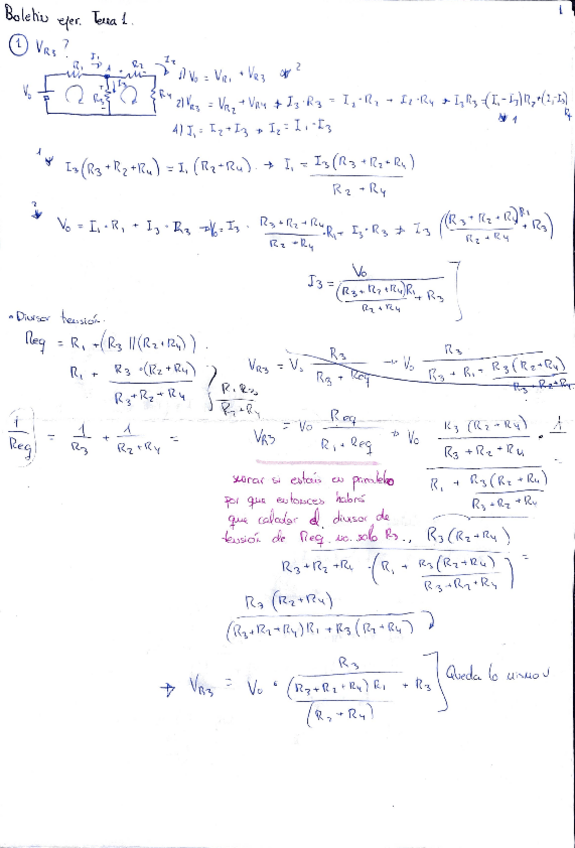 Boletín ejer. Tema 1.
1
① VR3 ?
V0 R1 I1 1 R2 I2 R3 I3 R4
1) V0 = VR1 + VR3
2) VR3 = VR2 + VR4 → I3 · R3 = I2 · R2 + I2 · R4 → I3R3 = (I1 - I3)R2 + (I1 - I3)R4
4) I1 = I2 + I3 → I2 = I1 - I3
I3 (R3 + R2 + R4) = I1 (R2 + R4) → I1 = I3 (R3 + R2 + R4) / R2 + R4
V0 = I1 · R1 + I3 · R3 → V0 = I3 · R3 + R2 + R4 / R2 + R4 · R1 + I3 · R3 → I3 ((R3 + R2 + R4) R1 / R2 + R4 + R3)
I3 = V0 / (R3 + R2 + R4) R1 / R2 + R4 + R3
• Divisor tensión.
Req = R1 + (R3 || (R2 + R4))
R1 + R3 · (R2 + R4) / R3 + R2 + R4
VR3 = V0 R3 / R3 + Req → V0 R3 / R3 + R1 + R3 (R2 + R4) / R3 + R2 + R4
1 / Req = 1 / R3 + 1 / R2 + R4 =
VR3 = V0 Req / R1 + Req → V0 R3 (R2 + R4) / R3 + R2 + R4 · 1 / R1 + R3 (R2 + R4) / R3 + R2 + R4
si están en paralelo
por que entonces habrá
que calcular el divisor de
tensión de Req no solo R3.
R3 (R2 + R4) / R3 + R2 + R4 · (R1 + R3 (R2 + R4) / R3 + R2 + R4) =
R3 (R2 + R4) / (R3 + R2 + R4) R1 + R3 (R2 + R4)
→ VR3 = V0 · R3 / (R3 + R2 + R4) R1 / (R2 + R4) + R3 Queda lo mismo